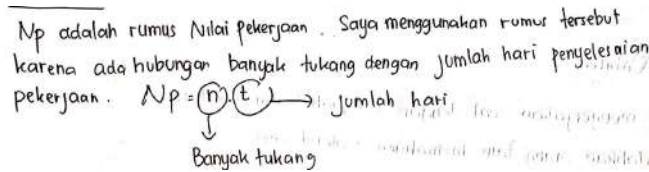 Np adalah rumus Nilai pekerjaan. Saya menggunakan rumus tersebut
karena ada hubungan banyak tukang dengan jumlah hari penyelesaian
pekerjaan. Np = n . t → jumlah hari
Banyak tukang